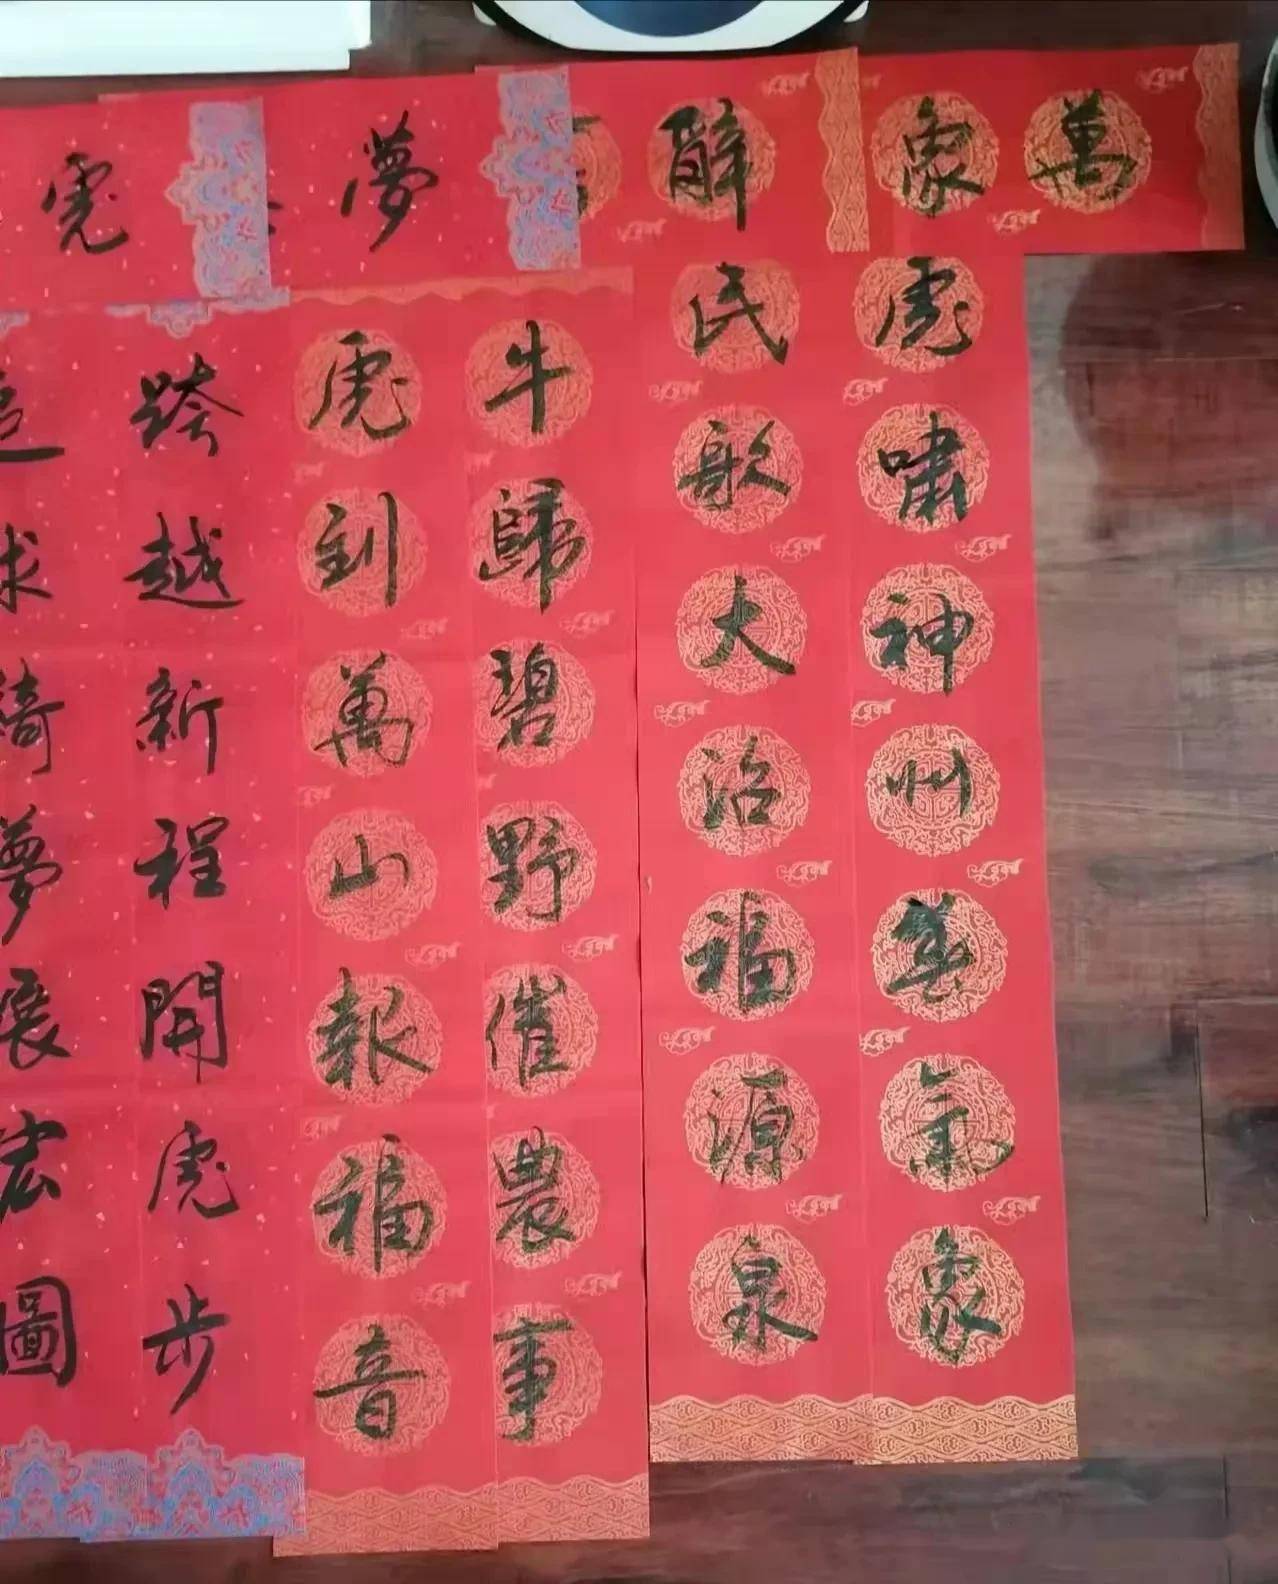 萬象
辭
夢
虎
虎嘯神州春氣象
民歌大治福源泉
牛歸碧野催農事
虎到萬山報福音
跨越新程開虎步
追求綺夢展宏圖